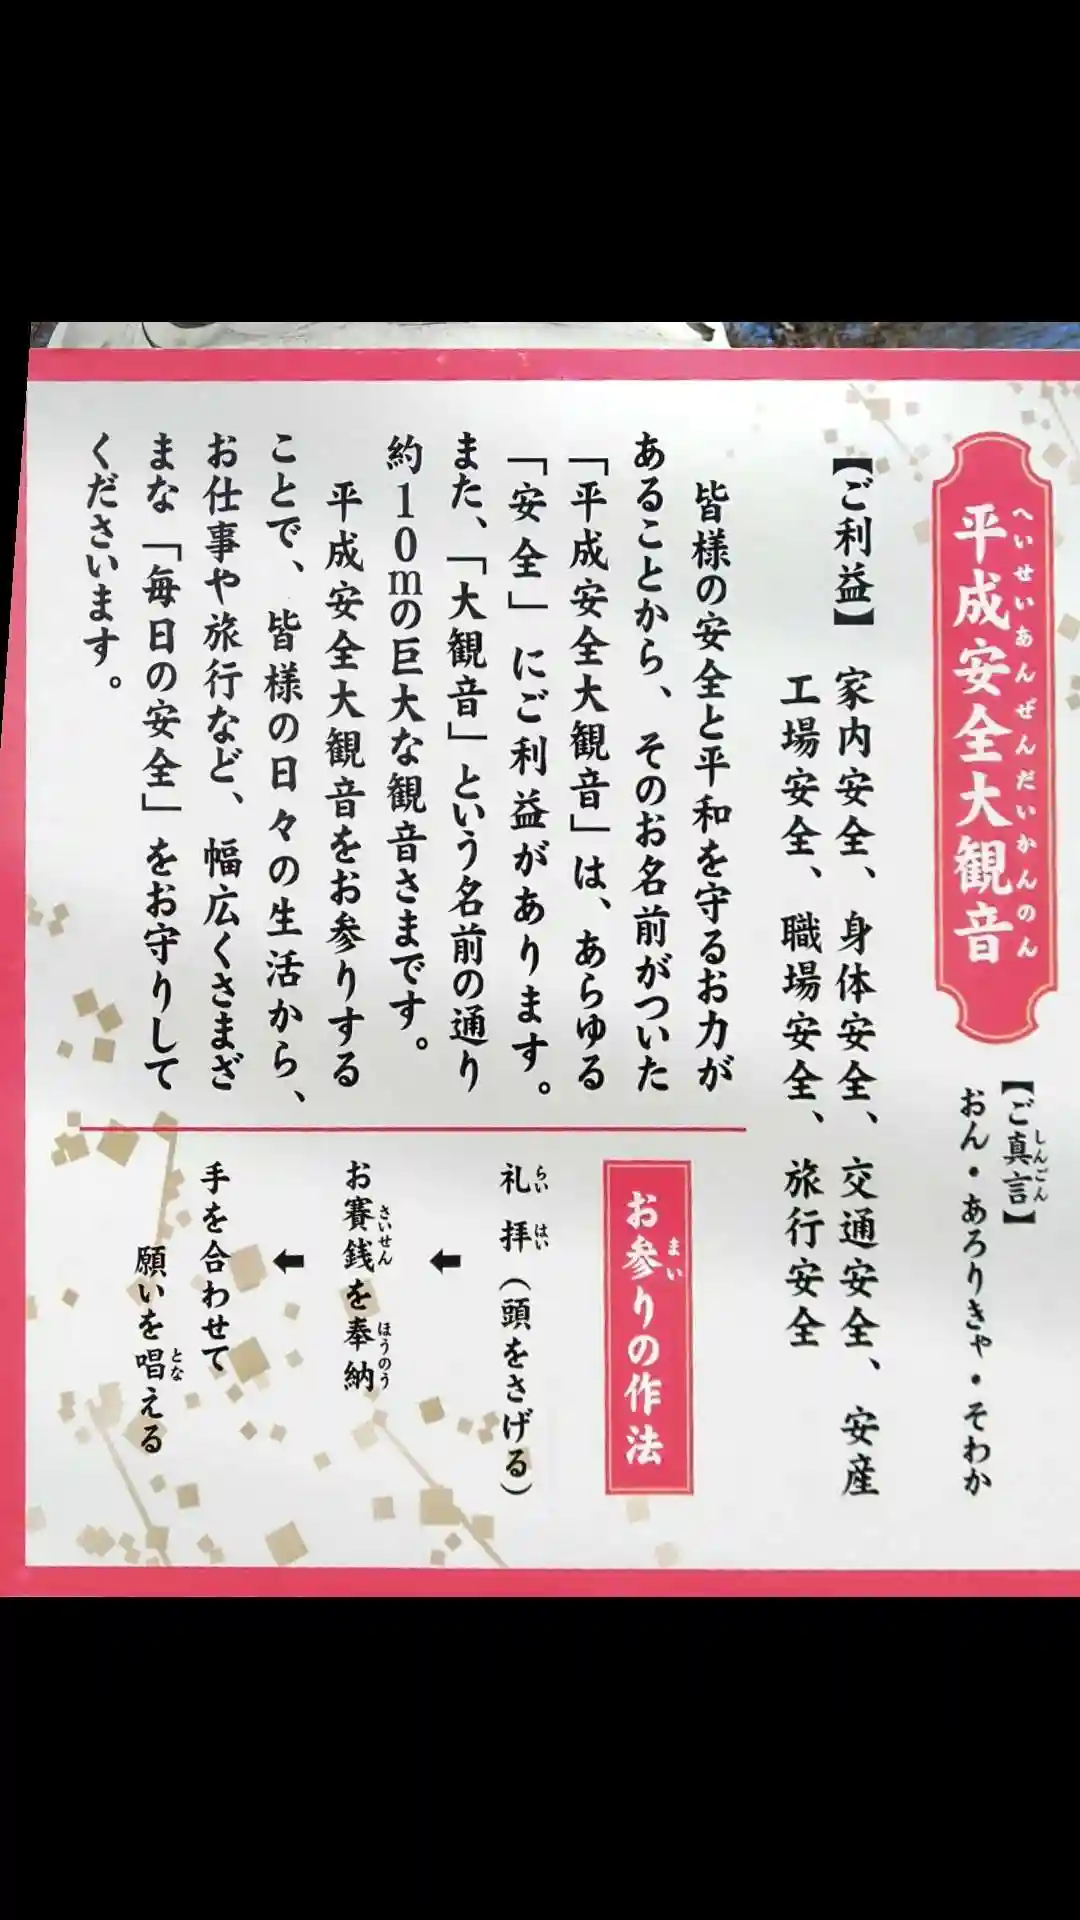 平成安全大観音
へいせいあんぜんだいかんのん
【ご真言】
しんごん
おん・あろりきゃ・そわか
【ご利益】 家内安全、身体安全、交通安全、安産
工場安全、職場安全、旅行安全
皆様の安全と平和を守るお力が
あることから、そのお名前がついた
「平成安全大観音」は、あらゆる
「安全」にご利益があります。
また、「大観音」という名前の通り
約10mの巨大な観音さまです。
平成安全大観音をお参りする
ことで、皆様の日々の生活から、
お仕事や旅行など、幅広くさまざ
まな「毎日の安全」をお守りして
くださいます。
お参りの作法
まい
礼拝(頭をさげる)
らいはい
⬅
お賽銭を奉納
さいせん ほうのう
⬅
手を合わせて
願いを唱える
とな